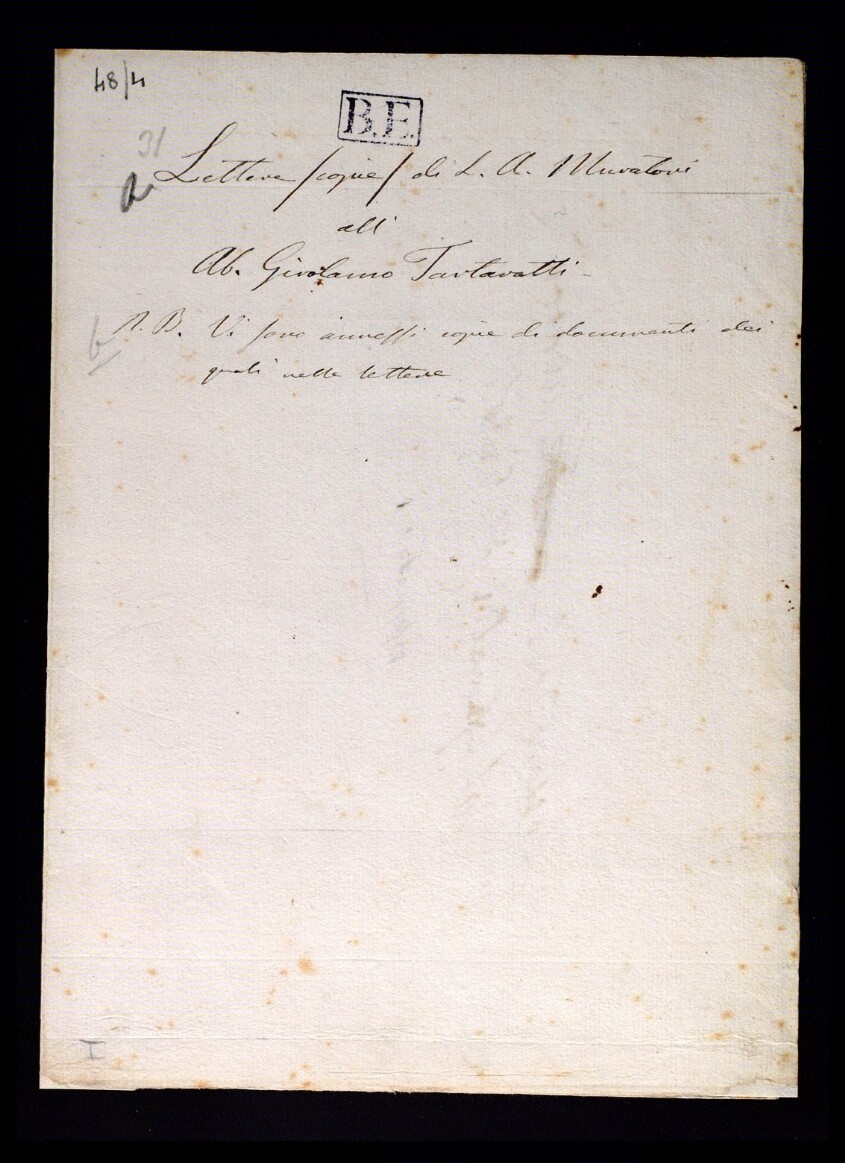 48/4
B.E.
31
a
Lettere /copie/ di L. A. Muratori
all'
Ab. Girolamo Tartarotti -
b
N. B. Vi sono annessi copie di documenti dei
quali nelle lettere
I